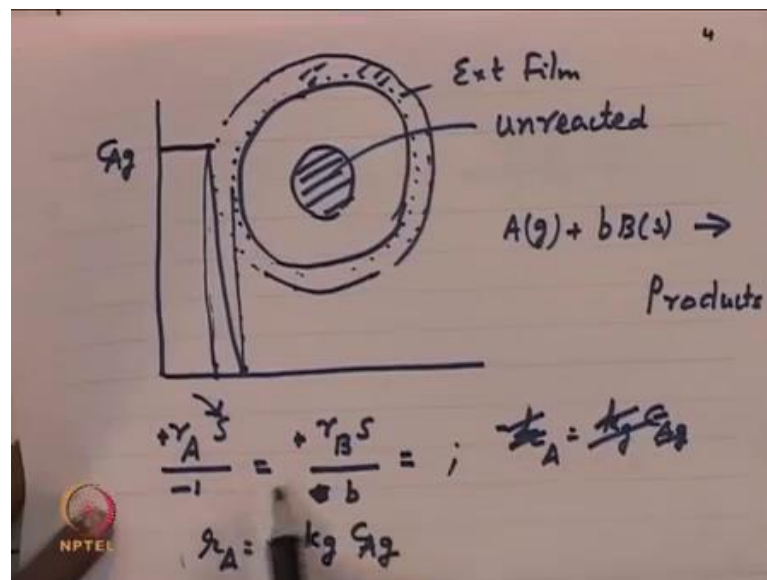 4
Ext Film
unreacted
CAg
A(g) + bB(s) →
Products
+rA S / -1 = + rB S / b = ;
rA = kg CAg
NPTEL